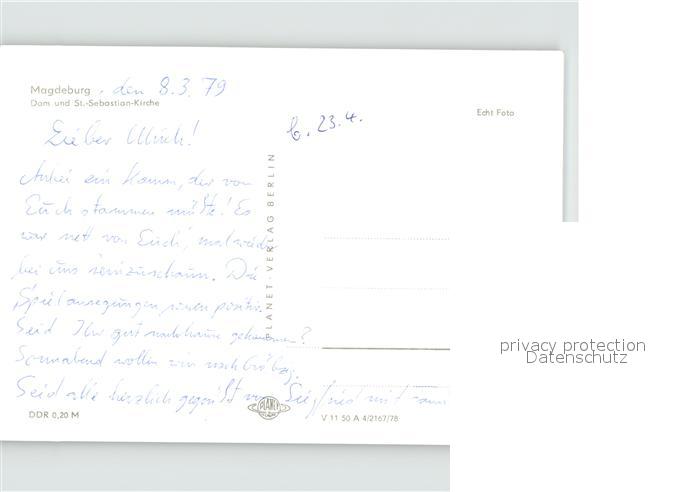 Magdeburg, den 8.3.79
Dom und St.-Sebastian-Kirche
Echt Foto
b. 23.4.
Lieber Ulrich!
Anbei ein Kamm, der von
Euch stammen müßte! Es
war nett von Euch, mal wieder
bei uns reinzuschaun. Die
Spielanregungen waren positiv.
Seid Ihr gut nachhause gekommen?
Sonnabend wollen wir nach
Seid alle herzlich gegrüßt von Siegfried mit
PLANET VERLAG BERLIN
DDR 0,20 M
PLANET
V 11 50 A 4/2167/78
privacy protection
Datenschutz